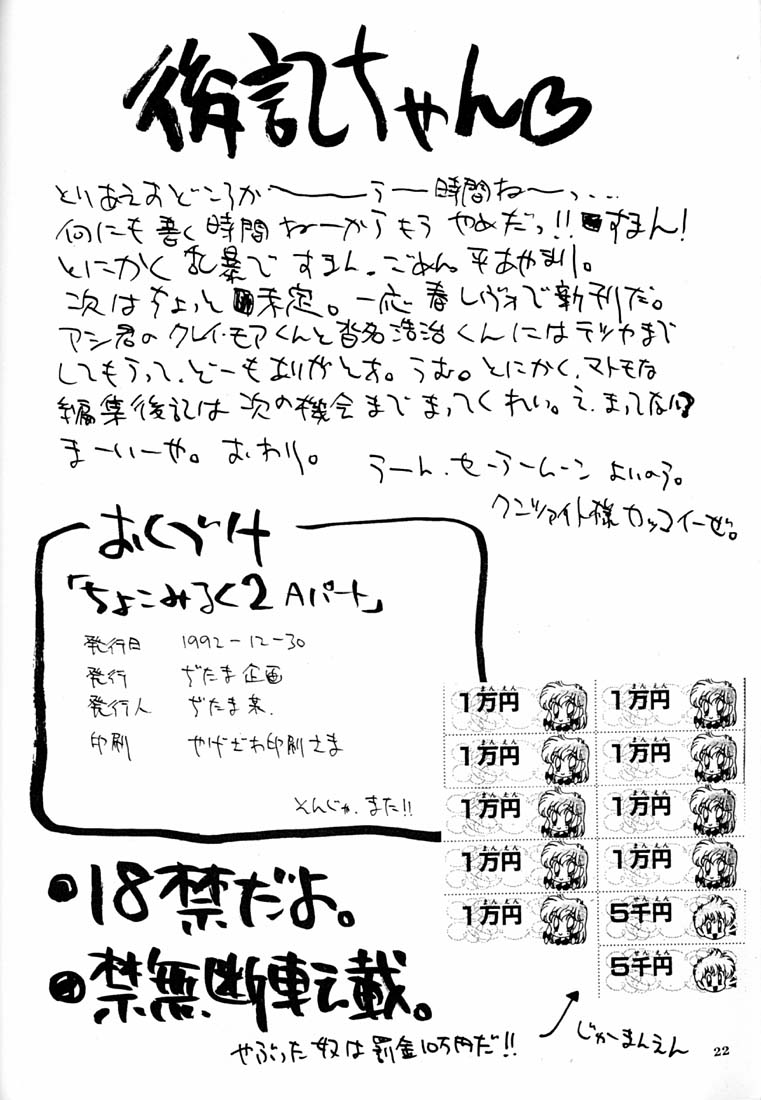 後記ちゃん♡
とりあえおどころか〜〜〜う〜時間ね〜っ...
何にも書く時間ねーからもう やめだっ!! すまん!
とにかく乱暴ですまん。ごめん。平あやまり。
次はちょっと未定。一応春レヴォで新刊だ。
アシ君のクレイ・モアくんと沓名浩治くんにはテツヤまで
してもらって、どーもありがとお。うむ。とにかく、マトモな
編集後記は次の機会までまってくれい。え、まってない?
まーいーや。おわり。
うーん、セーラームーンよいのう。
クンツァイト様カッコイーぜ。
おくづけ
「ちょこみるく2 Aパート」
発行日 1992-12-30
発行 ぢたま企画
発行人 ぢたま某.
印刷 やげざわ印刷さま
そんじゃ、また!!
まんえん
1万円
まんえん
1万円
まんえん
1万円
まんえん
1万円
まんえん
1万円
まんえん
1万円
まんえん
1万円
まんえん
1万円
まんえん
1万円
せんえん
5千円
せんえん
5千円
●18禁だよ。
●禁無断転載。
やぶった奴は罰金10万円だ!!
じゅーまんえん
22